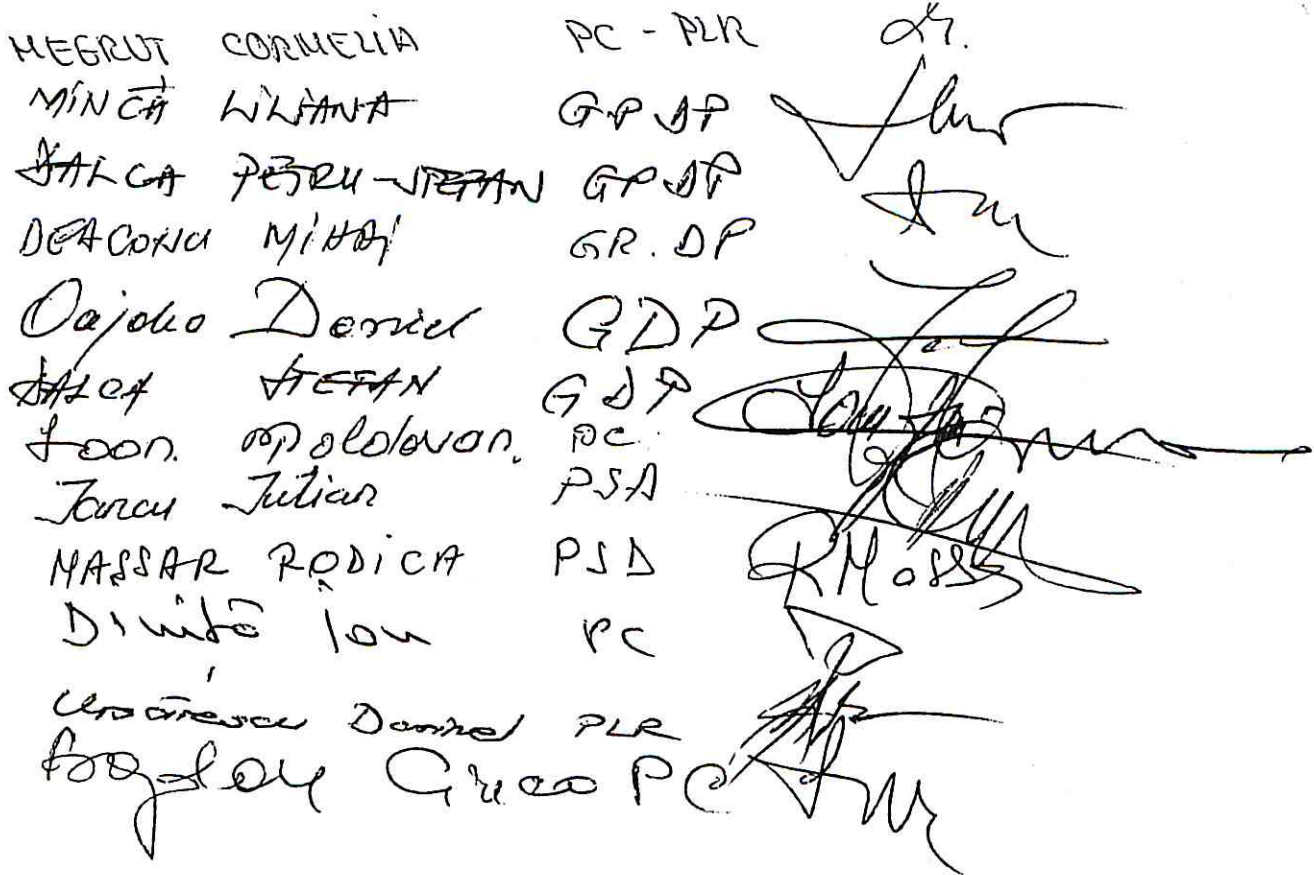 NEGRUT CORNELIA PC - PLR
MINCĂ LILIANA GP DP
DALCA PETRU-STEFAN GP DP
DEACONU MIHAI GR. DP
Oajdea Daniel GDP
DALCA STEFAN GDP
Ioan Moldovan. PC
Iancu Iulian PSD
MASSAR RODICA PSD RMass
Diniță Ion PC
Daniel PLR
Bogdan Ciuca PC